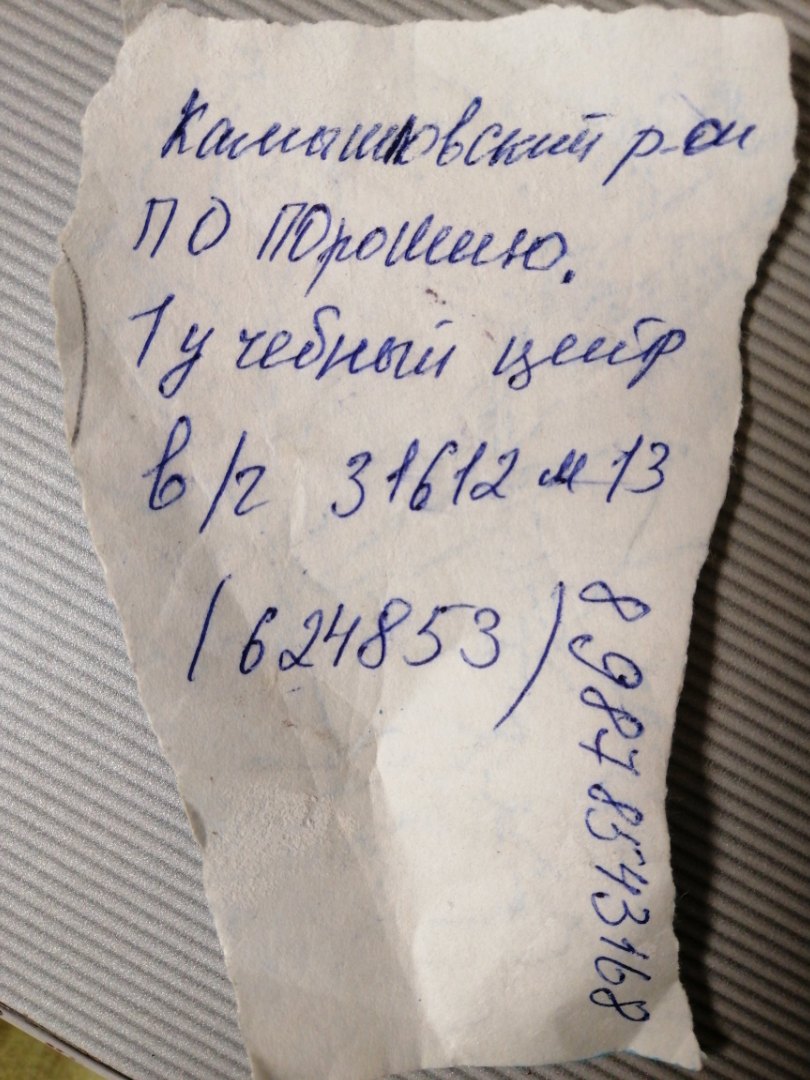 Камышловский р-он
ПО Порошино.
1 учебный центр
в/ч 31612 м 13
(624853)
89878543168